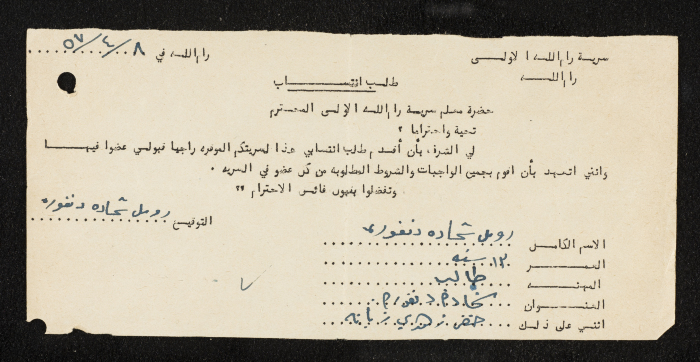 سرية رام الله الاولى
رام الله
رام الله في ٥٧/٤/٨
طلب انتساب
حضرة معلم سرية رام الله الاولى المحترم
تحية واحتراما ؟
لي الشرف بأن أقدم طلب انتسابي هذا لسريتكم الموقره راجيا قبولي عضوا فيها
وانني اتعهد بأن اقوم بجميع الواجبات والشروط المطلوبه من كل عضو في السريه .
وتفضلوا بقبول فائق الاحترام ؟؟
التوقيع
شحاده
الاسم الكامل شحاده
العمر ١٢ سنه
المهنه طالب
العنوان
اثني على ذلك